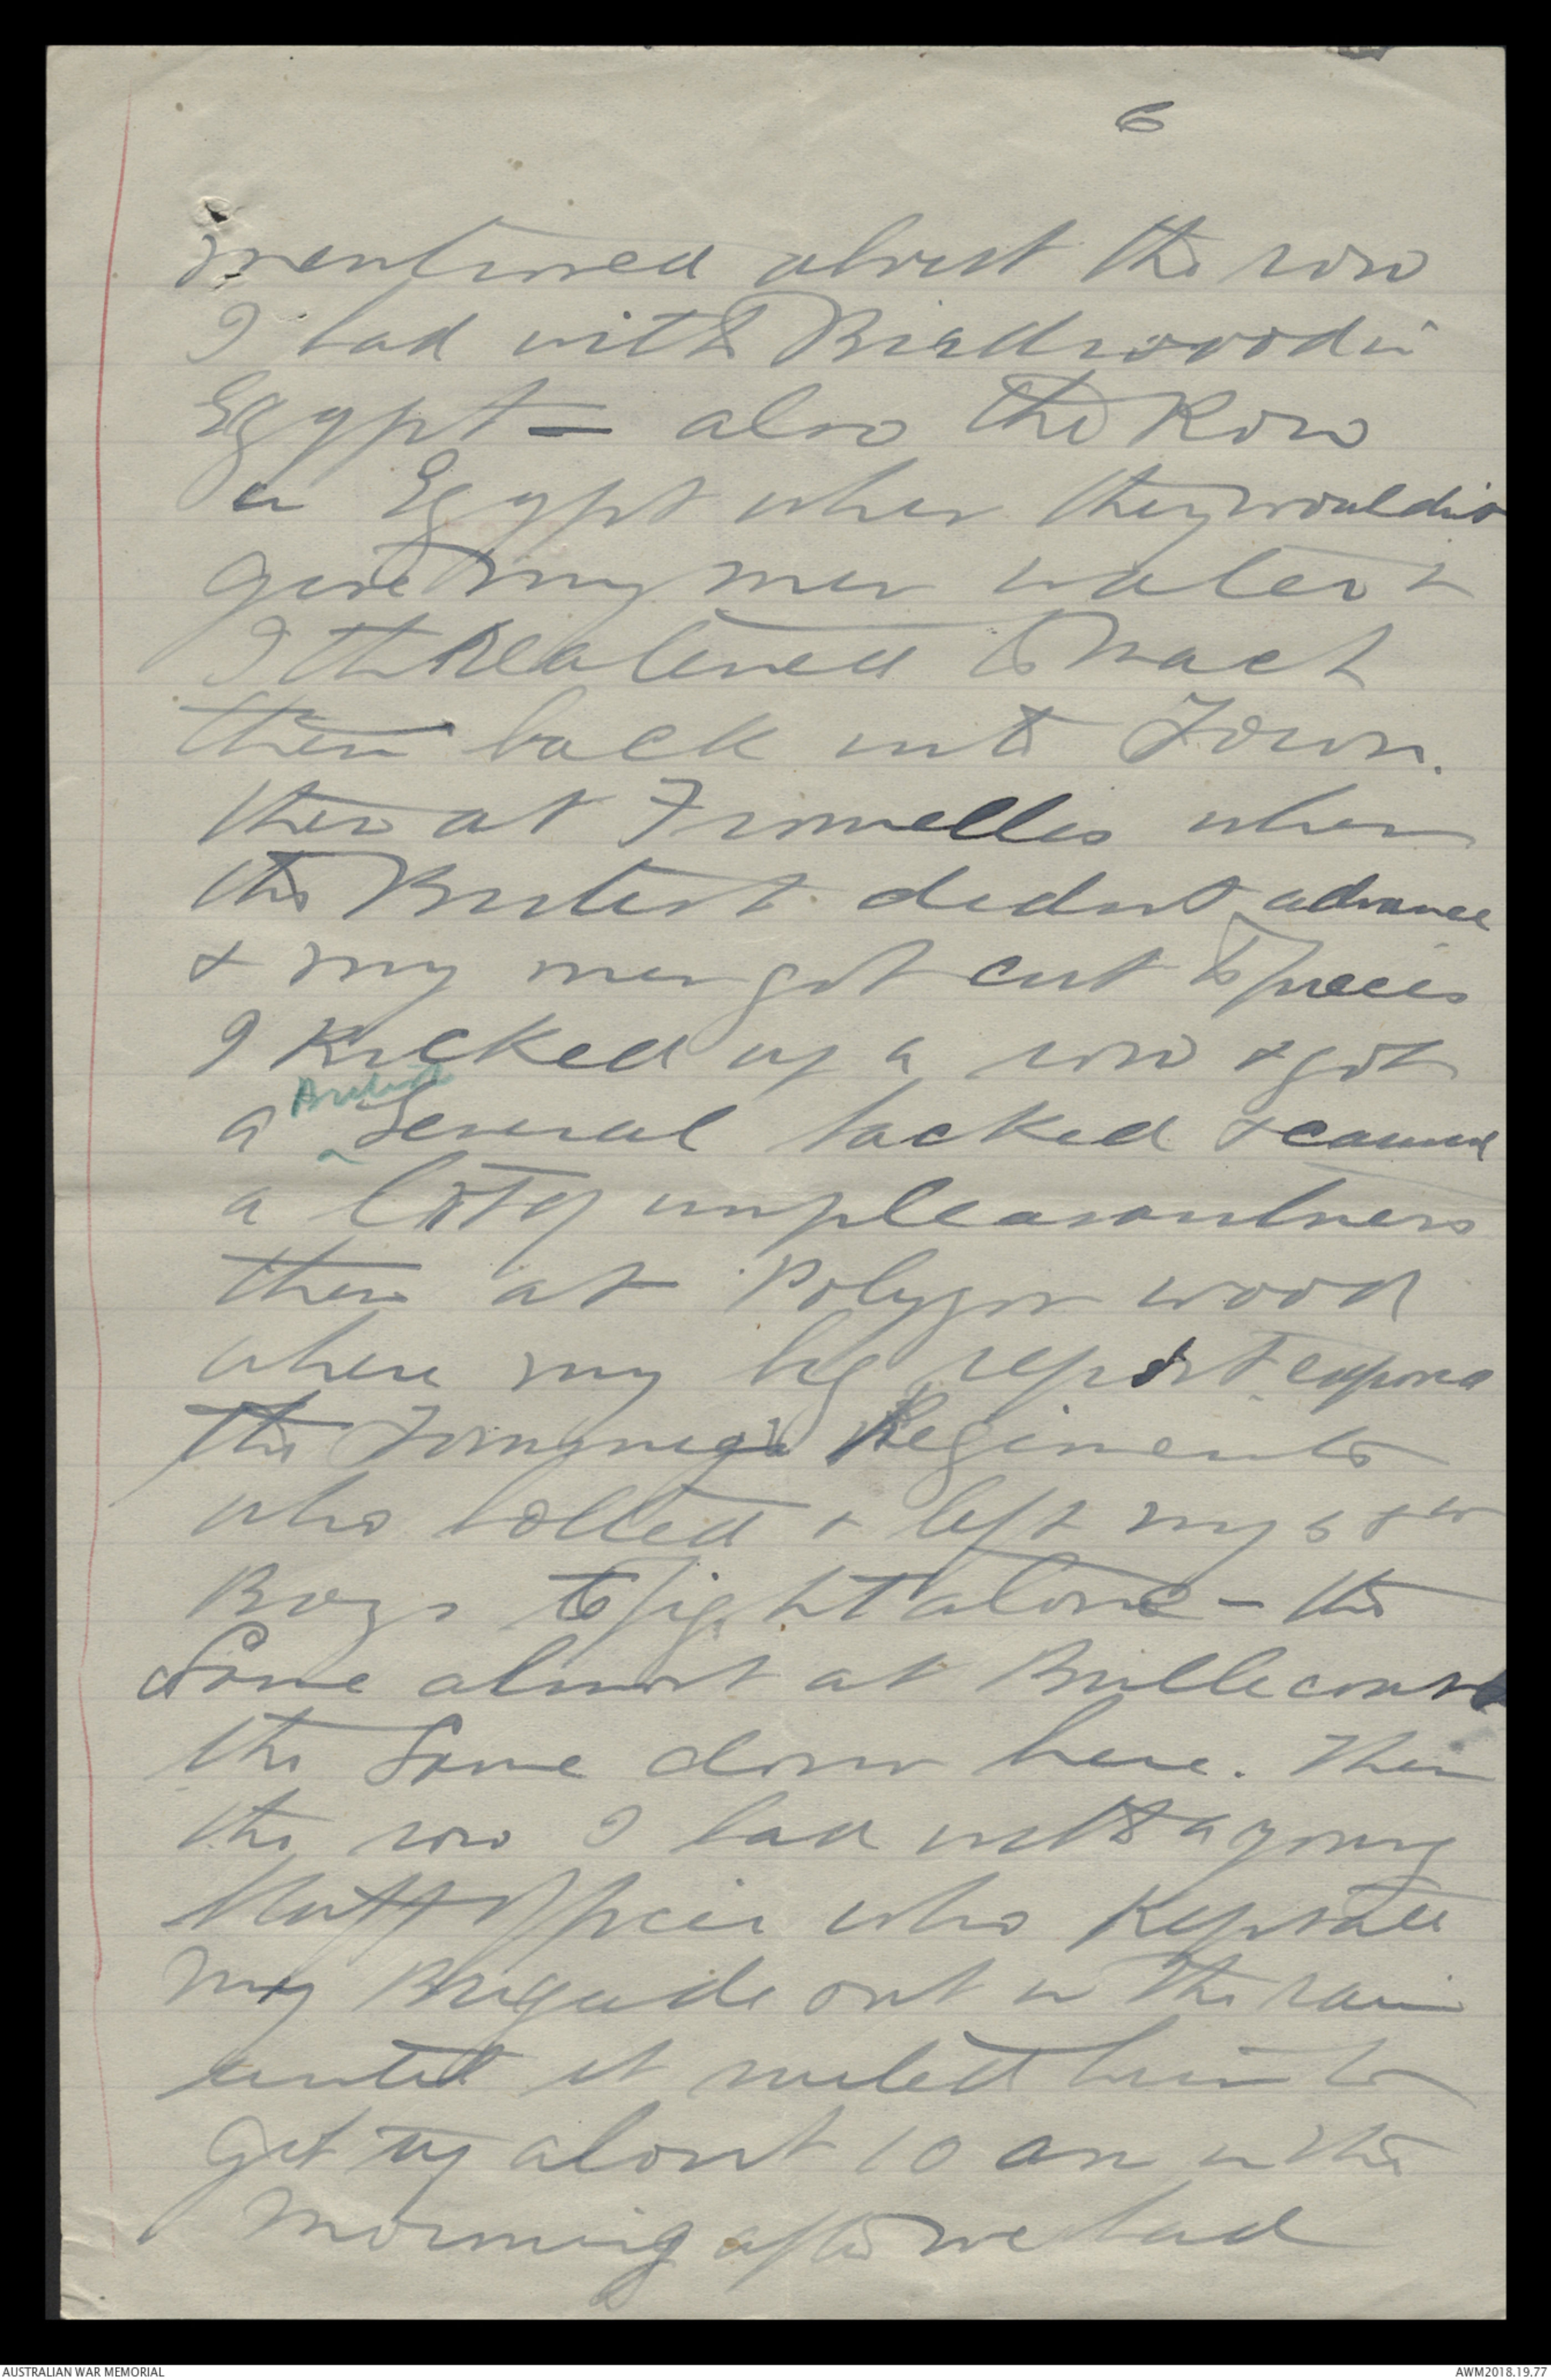 6
mentioned about the row
I had with Birdwood in
Egypt — also the Row
in Egypt when they wouldn't
give my men water &
I threatened to March
them back into Town.
then at Fromelles when
the British didnt advance
& my men got cut to pieces
I Kicked up a row & got
British
a General sacked & caused
a lot of unpleasantness
then at Polygon wood
where my big report exposed
the Regiments
who bolted & left my
Boys to fight alone — the
Same almost at Bullecourt
the Same down here. Then
the row I had with a young
Staff Officer who Kept all
my Brigade out in the rain
until it suited him to
get up about 10 am in the
morning after we had
AUSTRALIAN WAR MEMORIAL
AWM2018.19.77